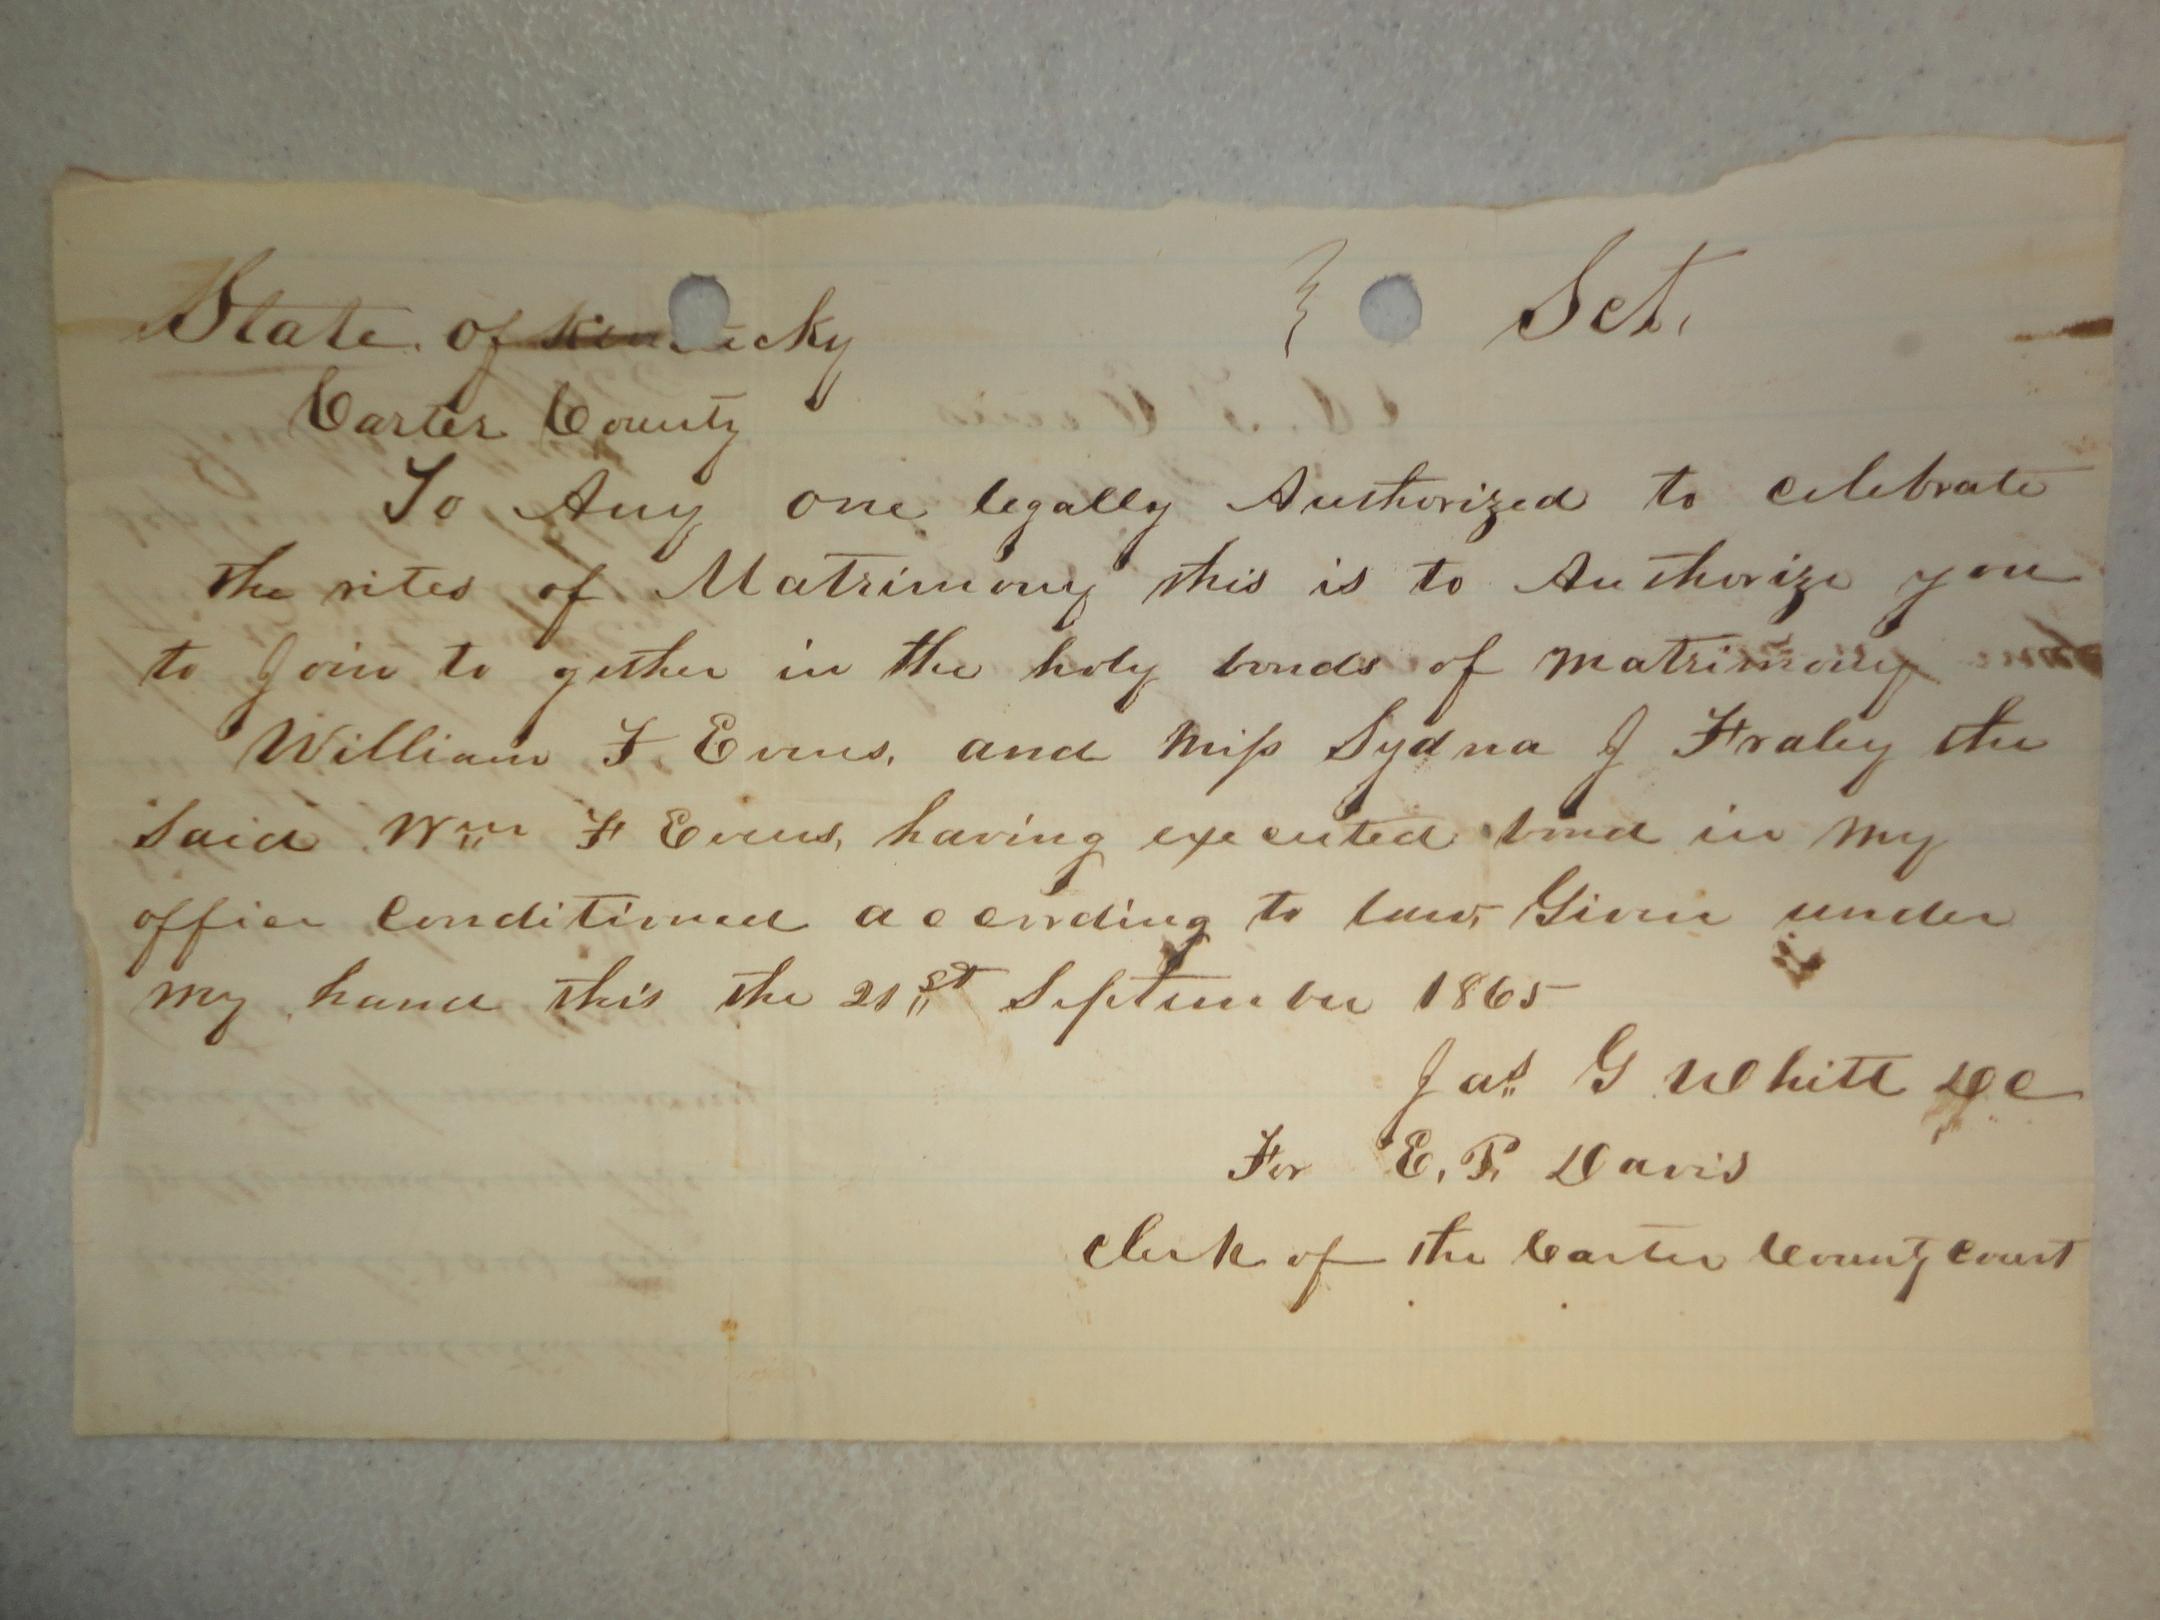 State of Kentucky } Sct.
Carter County
To Any one legally Authorized to celebrate
the rites of Matrimony this is to Authorize you
to Join to gether in the holy bonds of Matrimony
William F. Evans, and Miss Sydna J Fraley the
said Wm F Evans, having executed bond in my
office Conditioned according to law, Given under
my hand this the 21st September 1865
Jas G Whitt DC
For E. P. Davis
Clerk of the Carter County Court